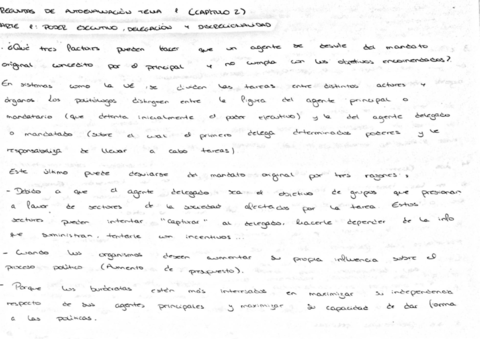 PREGUNTAS DE AUTOEVALUACIÓN TEMA 1 (CAPÍTULO 2)
PARTE 1: PODER EJECUTIVO, DELEGACIÓN Y DISCRECIONALIDAD
· ¿Qué tres factores pueden hacer que un agente se desvíe del mandato
original concedido por el principal y no cumpla con los objetivos encomendados?
En sistemas como la UE se dividen las tareas entre distintos actores y
órganos. Los politólogos distinguen entre la figura del agente principal o
mandatario (que detenta inicialmente el poder ejecutivo) y la del agente delegado
o mandatado (sobre el cual el primero delega determinados poderes y le
responsabiliza de llevar a cabo tareas)
Este último puede desviarse del mandato original por tres razones:
- Debido a que el agente delegado sea el objetivo de grupos que presionan
a favor de sectores de la sociedad afectados por la tarea. Estos
sectores pueden intentar "capturar" al delegado, hacerle depender de la info
que suministran, tenderle un incentivos...
- Cuando los organismos deseen aumentar su propia influencia sobre el
proceso político (Aumento de presupuesto).
- Porque los burócratas estén más interesados en maximizar su independencia
respecto de sus agentes principales y maximizar su capacidad de dar forma
a las políticas.